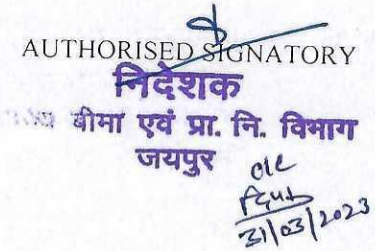 AUTHORISED SIGNATORY
निदेशक
बीमा एवं प्रा. नि. विभाग
जयपुर
31/03/2023